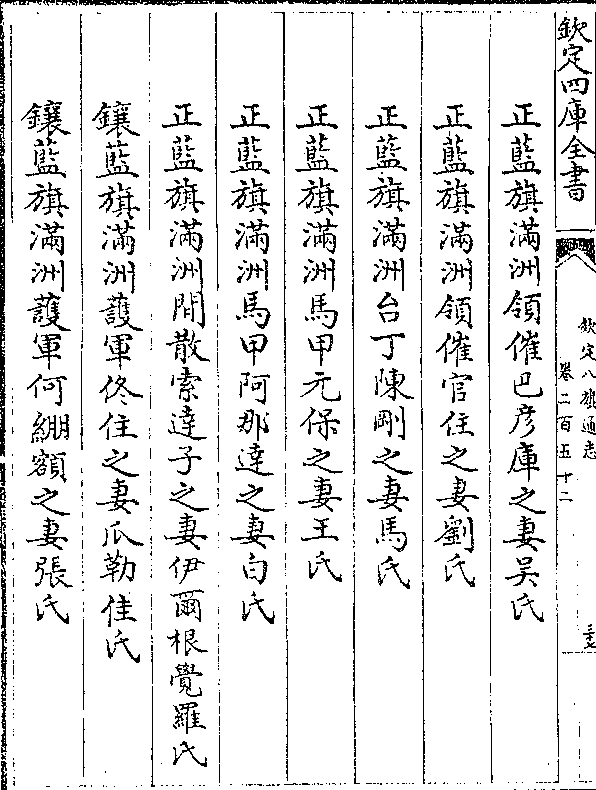 欽定四庫全書
欽定八旗通志
卷二百五十二
三七
正藍旗滿洲領催巴彦庫之妻吴氏
正藍旗滿洲領催官住之妻劉氏
正藍旗滿洲台丁陳剛之妻馬氏
正藍旗滿洲馬甲元保之妻王氏
正藍旗滿洲馬甲阿那達之妻白氏
正藍旗滿洲閒散索達子之妻伊爾根覺羅氏
鑲藍旗滿洲護軍佟住之妻瓜勒佳氏
鑲藍旗滿洲護軍何綳額之妻張氏